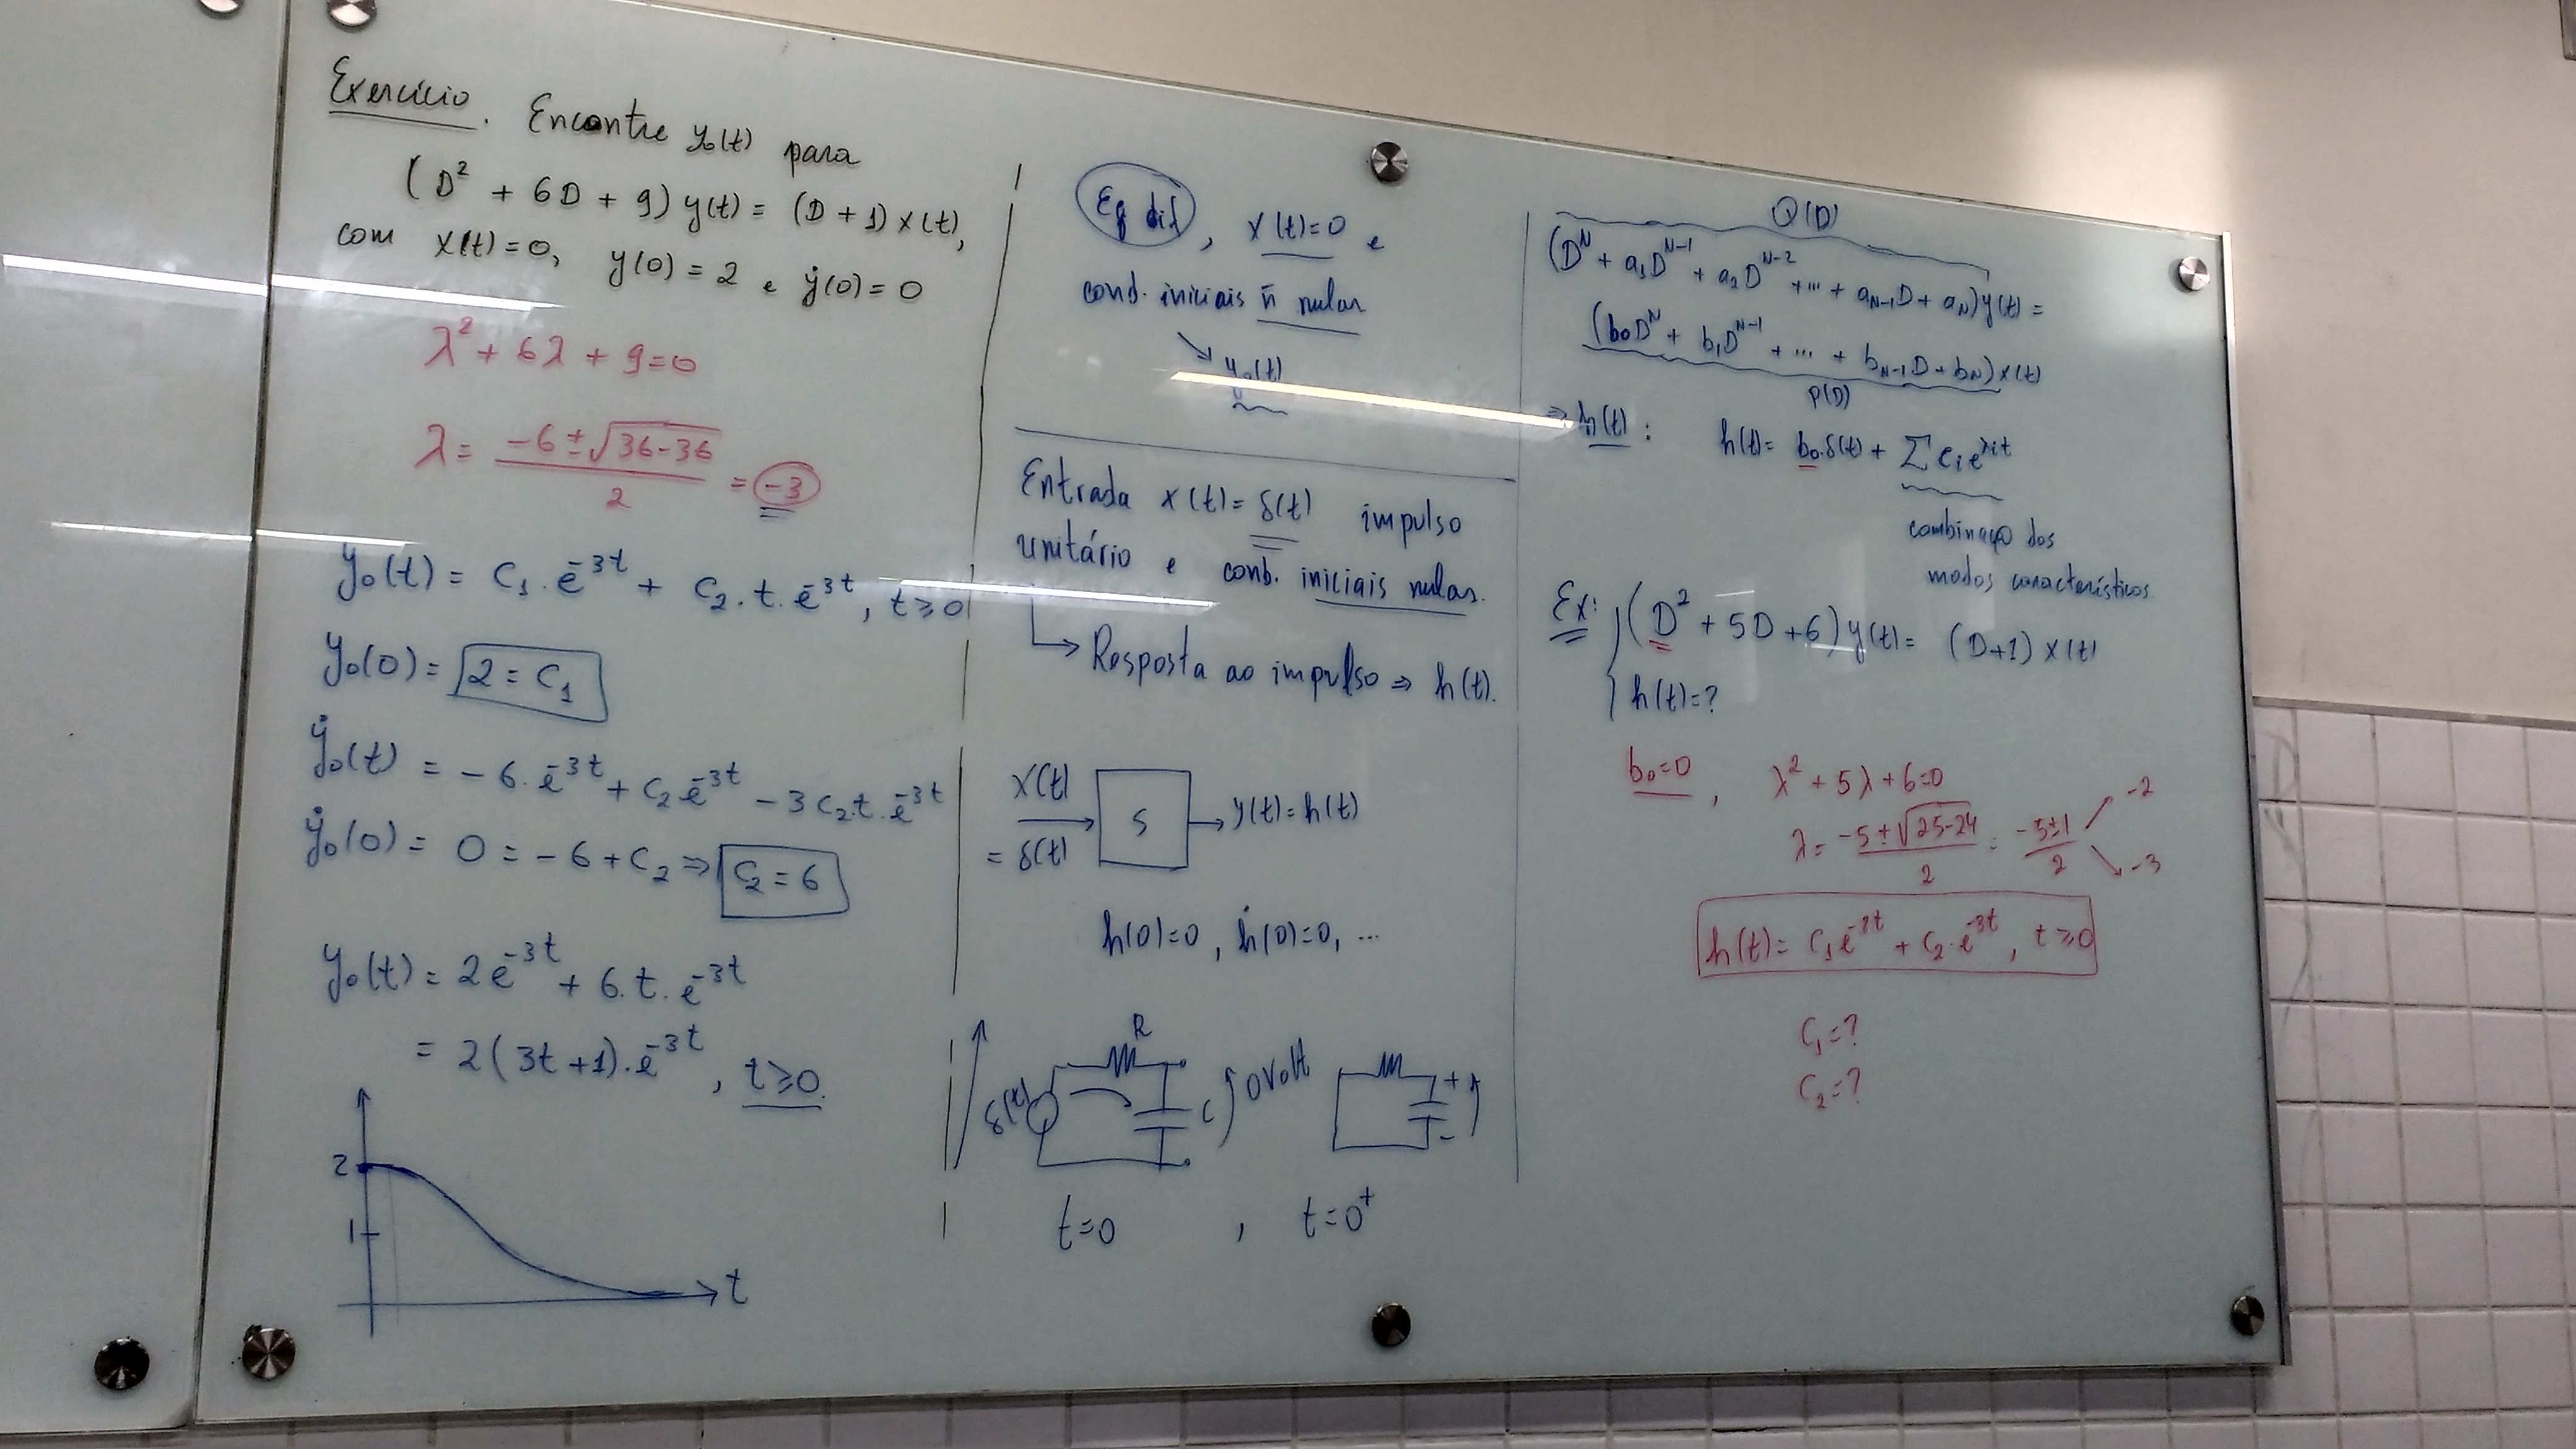 Exercício. Encontre y₀(t) para
(D² + 6D + 9) y(t) = (D + 1) x(t),
com x(t)=0, y(0) = 2 e ẏ(0) = 0
λ² + 6λ + 9=0
λ = (-6 ± √(36-36))/2 = -3
y₀(t) = C₁ . e⁻³ᵗ + C₂ . t . e⁻³ᵗ, t ≥ 0
y₀(0) = 2 = C₁
ẏ₀(t) = - 6 . e⁻³ᵗ + C₂ e⁻³ᵗ - 3 C₂ t . e⁻³ᵗ
ẏ₀(0) = 0 = - 6 + C₂ ⇒ C₂ = 6
y₀(t) = 2 e⁻³ᵗ + 6 . t . e⁻³ᵗ
= 2 (3t + 1) . e⁻³ᵗ, t ≥ 0.
2
1
t
Eq dif, x(t)=0 e
cond. iniciais ñ nulas
↘ y₀(t)
Entrada x(t) = δ(t) impulso
unitário e cond. iniciais nulas.
↳ Resposta ao impulso ⇒ h(t).
x(t)
= δ(t)
S
y(t) = h(t)
h(0)=0, ḣ(0)=0, ...
R
δ(t)
C
0 Volt
+
-
t=0 , t=0⁺
Q(D)
(Dᴺ + a₁Dᴺ⁻¹ + a₂Dᴺ⁻² + ... + aɴ₋₁D + aɴ) y(t) =
(b₀Dᴺ + b₁Dᴺ⁻¹ + ... + bɴ₋₁D + bɴ) x(t)
P(D)
⇒ h(t) : h(t) = b₀ . δ(t) + Σ cᵢ e^(λᵢt)
combinação dos
modos característicos
Ex: (D² + 5D + 6) y(t) = (D+1) x(t)
h(t) = ?
b₀=0, λ² + 5λ + 6=0
λ = (-5 ± √(25-24))/2 = (-5±1)/2 ↗ -2 ↘ -3
h(t) = C₁ e⁻²ᵗ + C₂ . e⁻³ᵗ, t ≥ 0
C₁ = ?
C₂ = ?